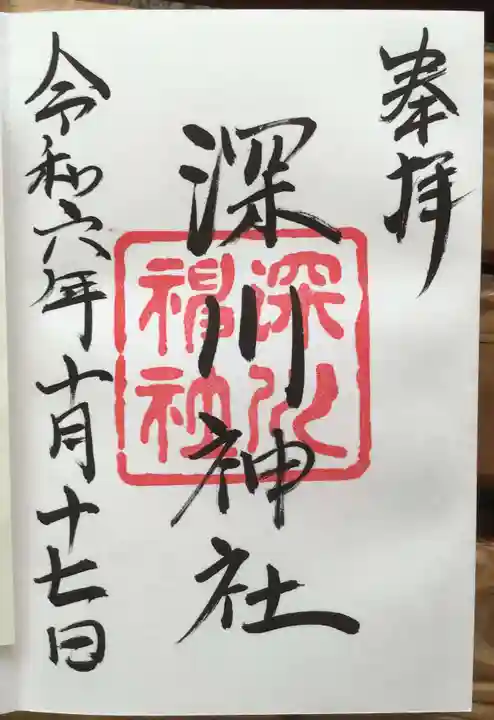 奉拝
深川神社
深川神社
令和六年十月十七日